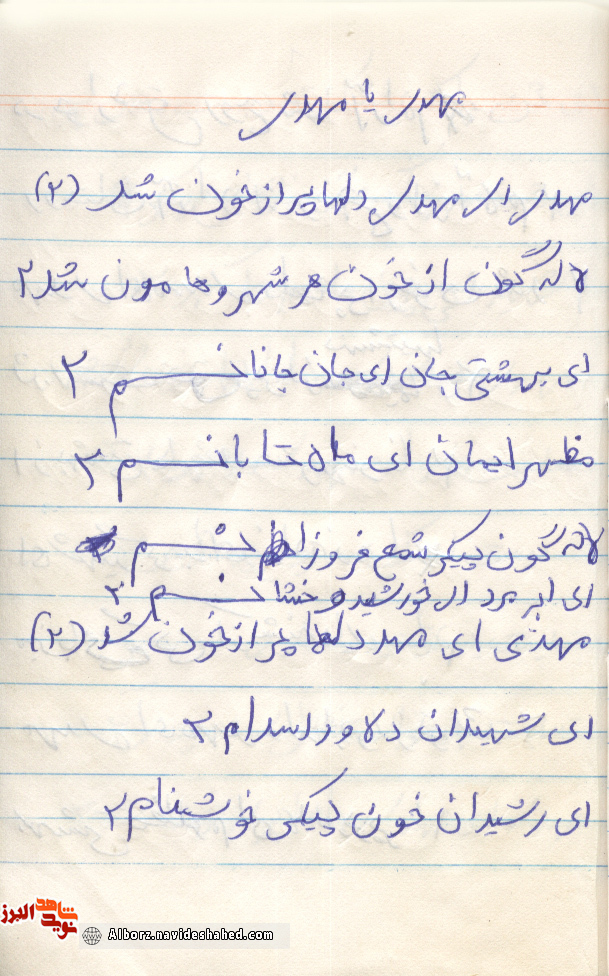 مهدی یا مهدی
مهدی ای مهدی دلها پر از خون شد (۲)
لاله گون از خون هر شهر و هامون شد ۲
ای بهشتی جان ای جان جانانم ۲
مظهر ایمان ای ماه تابانم ۲
لاله گون پیکر شمع فروزانم
ای ابر مرد ای خورشید رخشانم ۲
مهدی ای مهد دلها پر از خون شد (۲)
ای شهیدان دلاور اسلام ۲
ای رشیدان خون پیکر خوشنام ۲
نوید شاهد البرز
Alborz.navideshahed.com